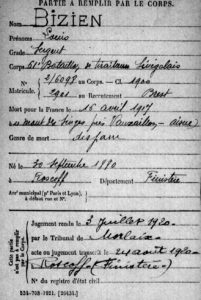 PARTIE À REMPLIR PAR LE CORPS.
Nom BIZIEN
Prénoms Louis
Grade Sergent
Corps 61e Bataillon de Tirailleurs Sénégalais
N° 2/6098 au Corps. — Cl. 1900
Matricule. 2901 au Recrutement Brest
Mort pour la France le 16 avril 1917
à mont de singes près Vauxaillon - Aisne
Genre de mort disparu
Né le 30 septembre 1880
à Roscoff Département Finistère
Arrt municipal (pr Paris et Lyon),
à défaut rue et N°.
Cette partie n'est pas à remplir par le Corps.
Jugement rendu le 3 juillet 1920
par le Tribunal de Morlaix
acte ou jugement transcrit le 24 août 1920
Roscoff (Finistère)
N° du registre d'état civil
534-708-1921. [26434.]